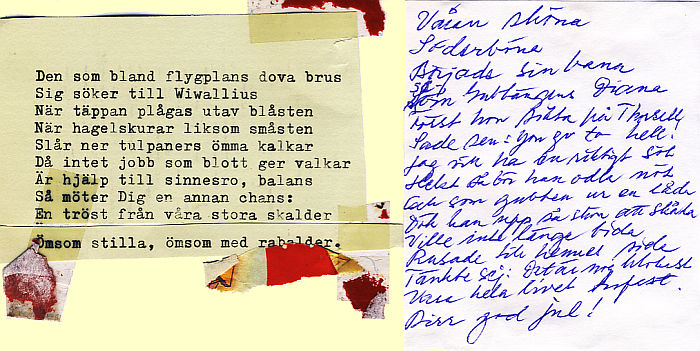 Den som bland flygplans dova brus
Sig söker till Wiwallius
När täppan plågas utav blåsten
När hagelskurar liksom småsten
Slår ner tulpaners ömma kalkar
Då intet jobb som blott ger valkar
Är hjälp till sinnesro, balans
Så möter Dig en annan chans:
En tröst från våra stora skalder
Ömsom stilla, ömsom med rabalder.
Våran sköna
Söderböna
Började sin bana
som Diana
Först hon på
Sade sen: You go to hell!
Jag vill ha en riktigt
Helst så bör han odla
Och som gubben ur en låda
Dök han upp så att skåda
Ville inte länge bida
Rusade till hennes sida
Tänkte sej: Det är nog klokast
Vara hela livet
god jul!